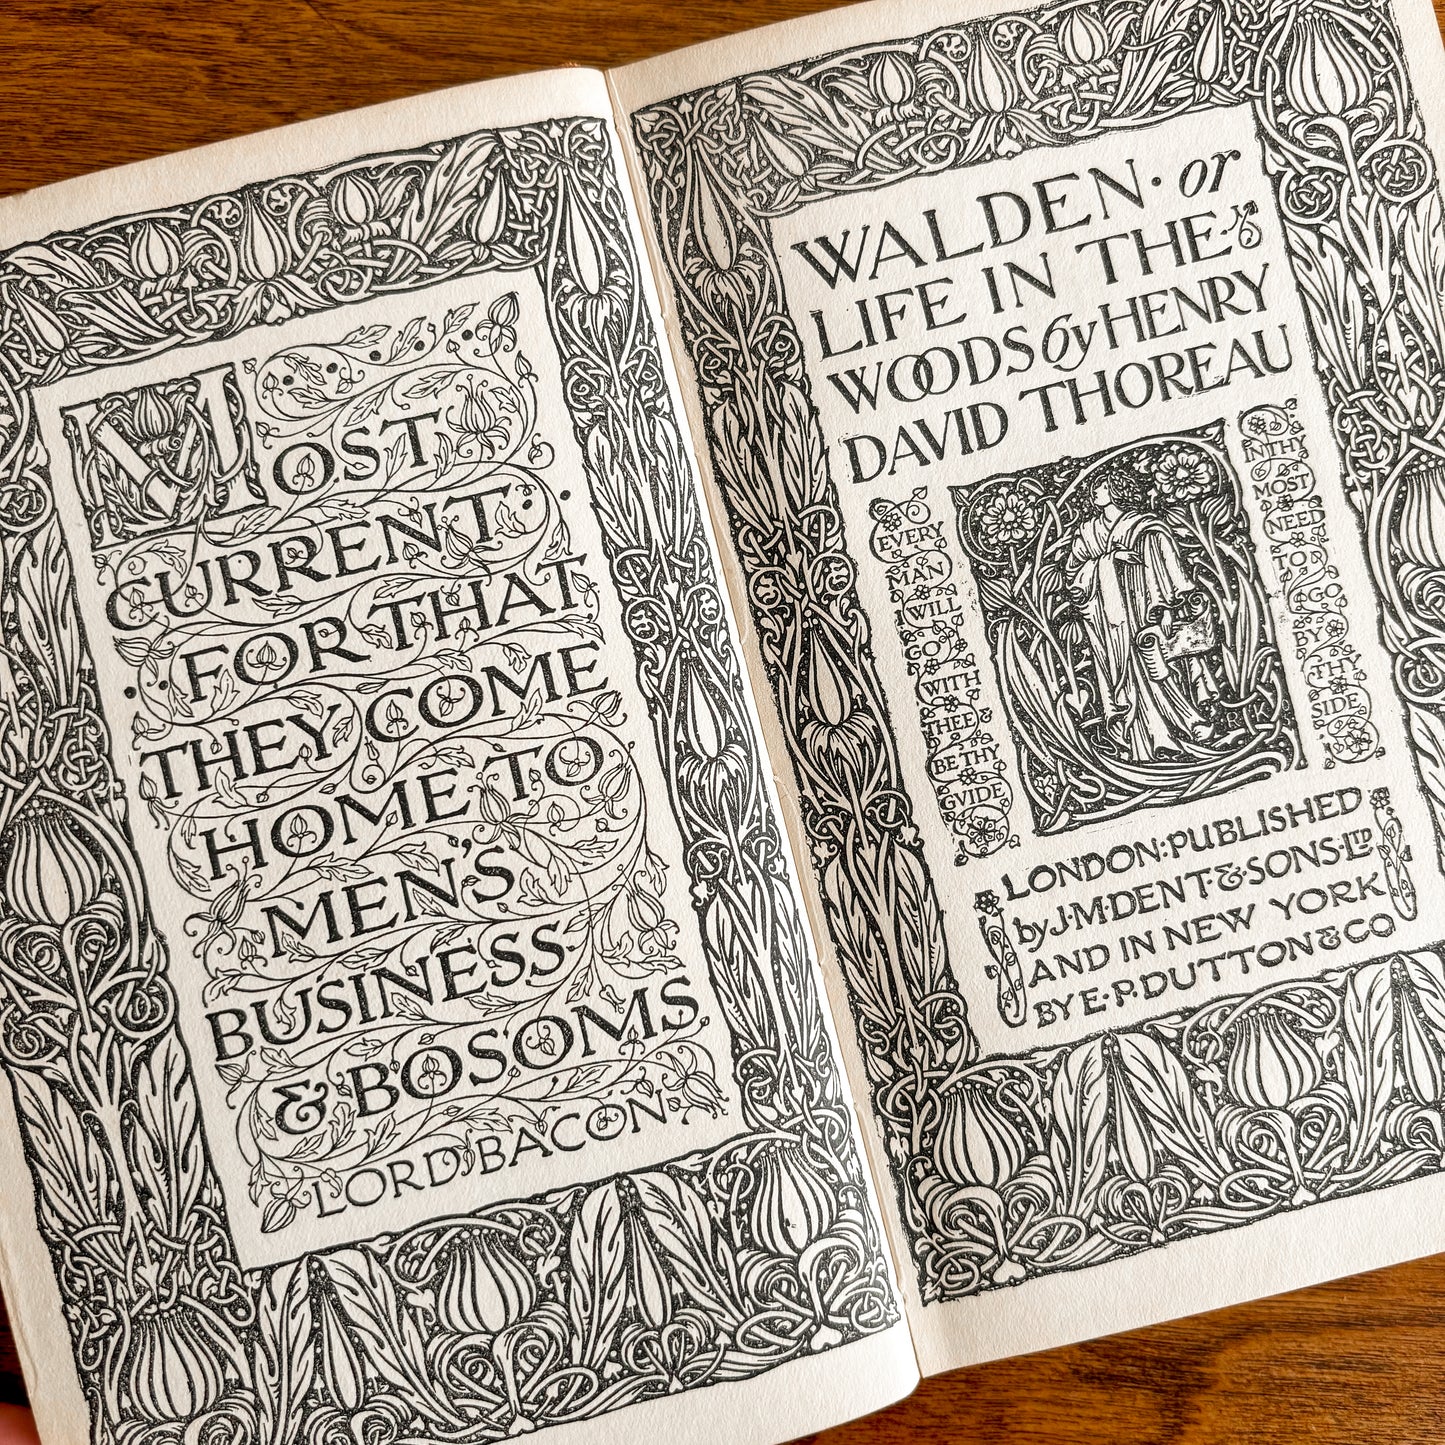 MOST
CURRENT
FOR THAT
THEY COME
HOME TO
MEN'S
BUSINESS
& BOSOMS
LORD BACON
WALDEN · or
LIFE IN THE
WOODS by HENRY
DAVID THOREAU
EVERY
MAN
I WILL
GO
WITH
THEE &
BE THY
GVIDE
IN THY
MOST
NEED
TO
GO
BY
THY
SIDE
RLK
LONDON: PUBLISHED
by J·M·DENT·&·SONS·LTD
AND IN NEW YORK
BY E·P·DUTTON & CO